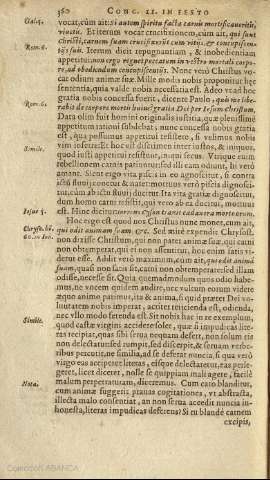 360 CONC. II. IN FESTO
Galat. 5. vocat, cùm ait: si autem spiritu facta carnis mortificaueritis,
viuetis. Et iterum vocat crucifixionem, cùm ait, qui sunt
Christi, carnem suam crucifixerunt cum vitiis, & concupiscen-
Rom. 6. tiis suis. Iterum dicit repugnantiam, & inobedientiam
appetitus: non ergo regnet peccatum in vestro mortali corpo-
re, ad obediendum concupiscentiis eius. Nonne verò Christus vo-
cat odium animæ suæ. Mille modis nobis proponitur hęc
sententia, quia mille vocibus necessaria est. Adeò vt ad hoc
Rom. 6. gratia nobis concessa fuerit, dicente Paulo, quis me libe-
rabit de corpore mortis huius? gratia Dei per Iesum Christum.
Dara olim fuit homini originalis iustitia, quæ plenissimè
appetitum rationi subdebat: nunc concessa nobis gratia
est, qua possumus appetitui resistere, si velimus nobis
Simile. vim inferre: Et hoc est discrimen inter iustos, & iniquos,
quòd iusti appetitui resistunt, iniqui secus. Virtique enim
rebellionem carnis patiuntur: sed illi eam odiunt, hi verò
amant. Sicut ergo vita piscis in eo agnoscitur, si contra
ictū fluuij conetur & natet: mortuus verò piscis dignosci-
tur, cùm ab ictu fluuij ducitur. Ita vita gratiæ dignoscitur,
dum homo carni resistit, qui verò ab ea ducitur, mortuus
est. Hinc dicitur
Hoc ergo est quod nos Christus nunc monet, cùm ait,
Chrysost. hō. qui odit animam suam, &c. Sed mirè expendit Chrysost.
non dixisse Christum, qui non patet animæ suæ, qui carni
non obtemperat, qui ei non assentitur, hoc enim satis vi-
deretur esse. Addit verò maximum, cùm ait, qui odit animā
suam, quasi non satis sit, carni non obtemperare: sed illam
odisse, necesse sit. Quia quemadmodum quos odio habe-
mus, ne vocem quidem audire, nec vultum eorum videre
æquo animo patimur, ita & anima, si quid præter Dei vo-
luntatem nobis imperat, acriter reiicienda est, odienda,
nec vllo modo ferenda est. Sit nobis hac in re exemplum,
Simile. quod castæ virgini accidere solet, quæ si impudicas lite-
ras recipiat, quas sibi seruus nequam defert, non solum eis
non delectatur: sed rumpit, sed discerpit, & seruum verbe-
ribus percutit, ne similia, ad se deferat nuncia, si qua verò
virago eas acciperet literas, eisque delectaretur, eas perle-
geret, licet diceret, nolle se quippiam mali agere, facilè
Nota. malum perpetraturam, diceremus. Cum caro blanditur,
cum animæ suggerit prauas cogitationes, vt abstracta,
illecta malo consentiat, an non serua accedit nuncia in-
honesta, literas impudicas deferens? Si tu blandè carnem
excipis,
Colección ABANCA